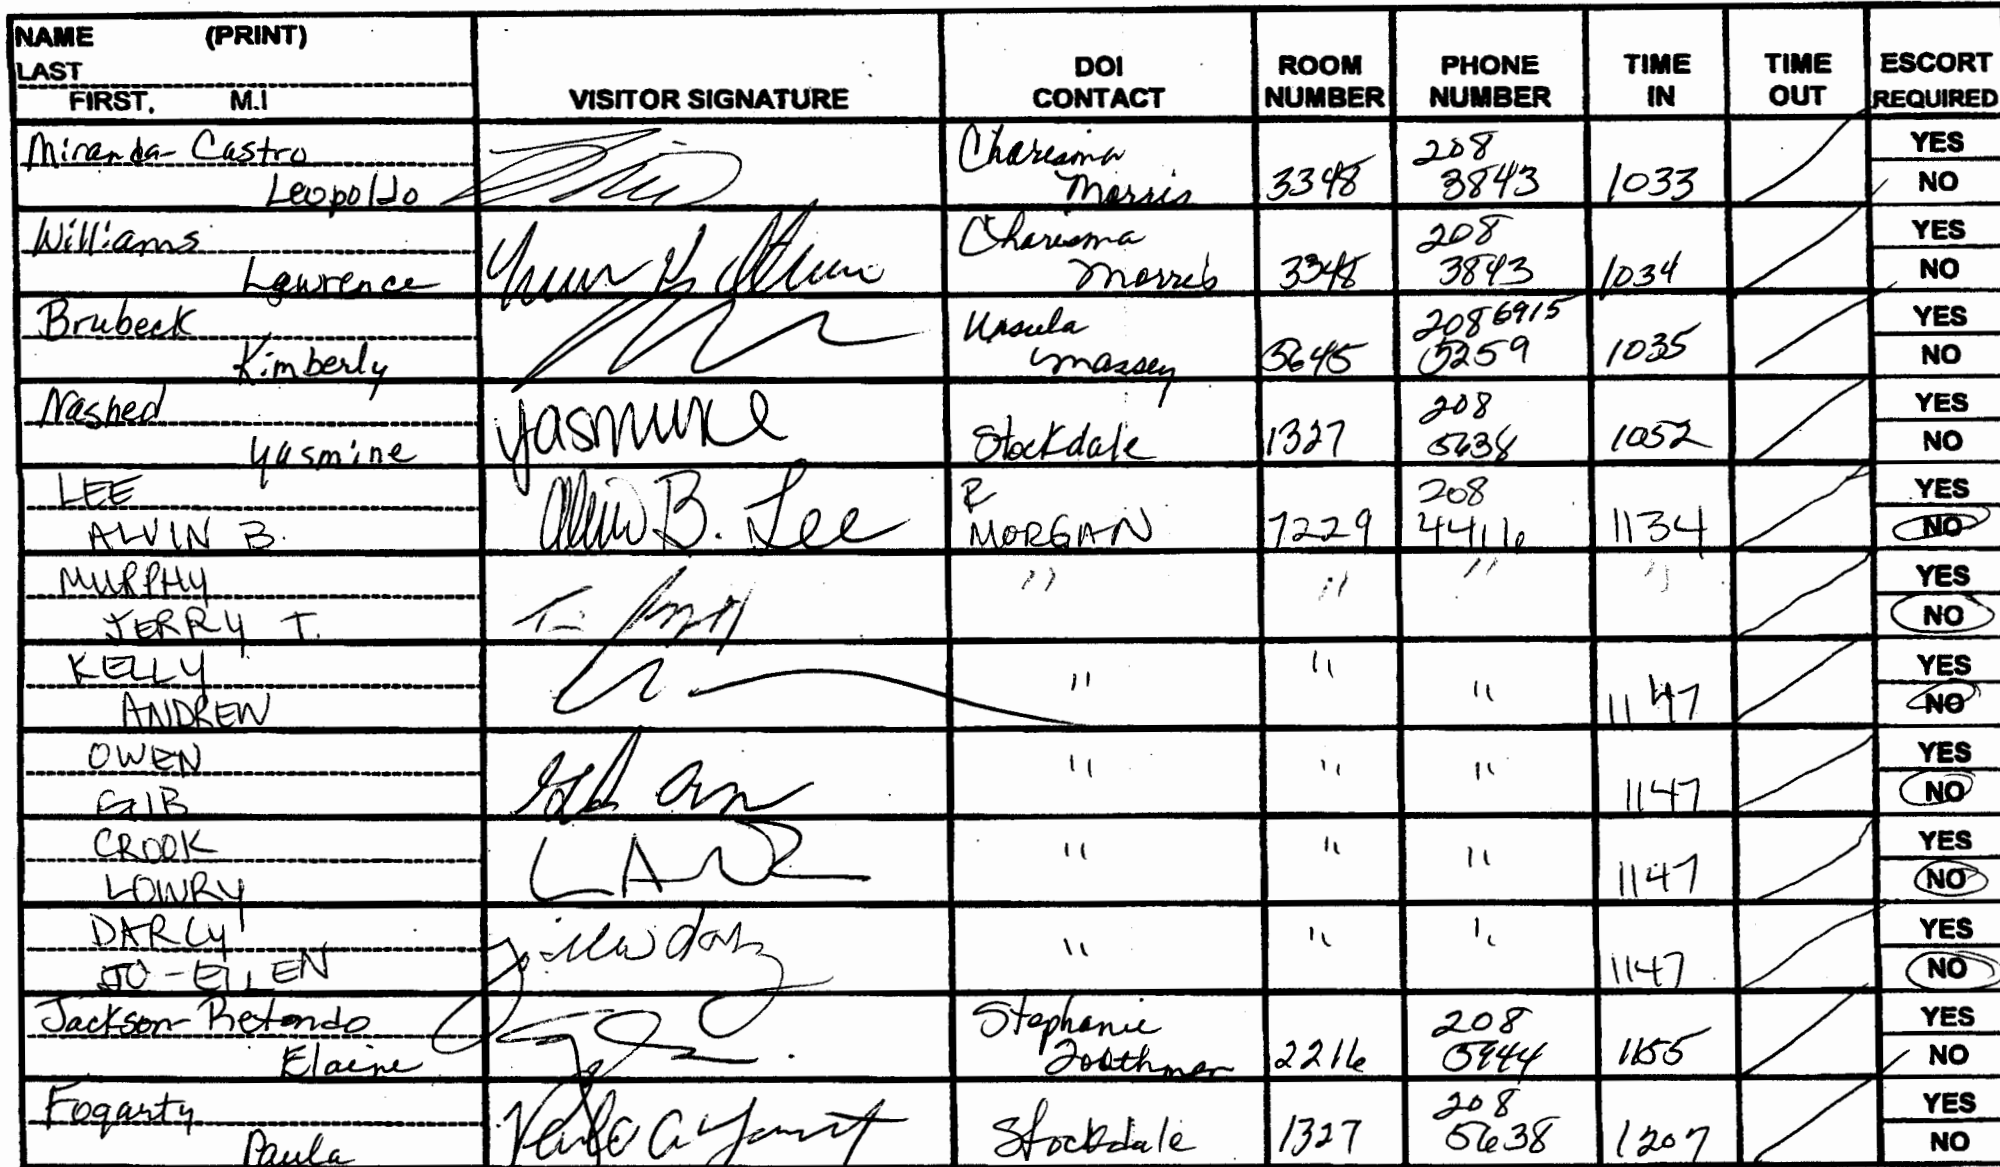 NAME (PRINT)
LAST
FIRST, M.I
VISITOR SIGNATURE
DOI
CONTACT
ROOM
NUMBER
PHONE
NUMBER
TIME
IN
TIME
OUT
ESCORT
REQUIRED
Miranda-Castro
Leopoldo
Charisma
Morris
3348
208
3843
1033
YES
NO
Williams
Lawrence
Charisma
Morris
3348
208
3843
1034
YES
NO
Brubeck
Kimberly
Ursula
Massey
5645
208 6915
5259
1035
YES
NO
Nashed
Yasmine
Yasmine
Stockdale
1327
208
5638
1052
YES
NO
LEE
ALVIN B.
Alvin B. Lee
R
MORGAN
7229
208
4416
1134
YES
NO
MURPHY
JERRY T.
" " " "
YES
NO
KELLY
ANDREW
" " "
1147
YES
NO
OWEN
GIB
" " "
1147
YES
NO
CROOK
LOWRY
" " "
1147
YES
NO
DARCY
JO-ELLEN
" " "
1147
YES
NO
Jackson-Retondo
Elaine
Stephanie
Toothman
2216
208
5944
1155
YES
NO
Fogarty
Paula
Stockdale
1327
208
5638
1207
YES
NO